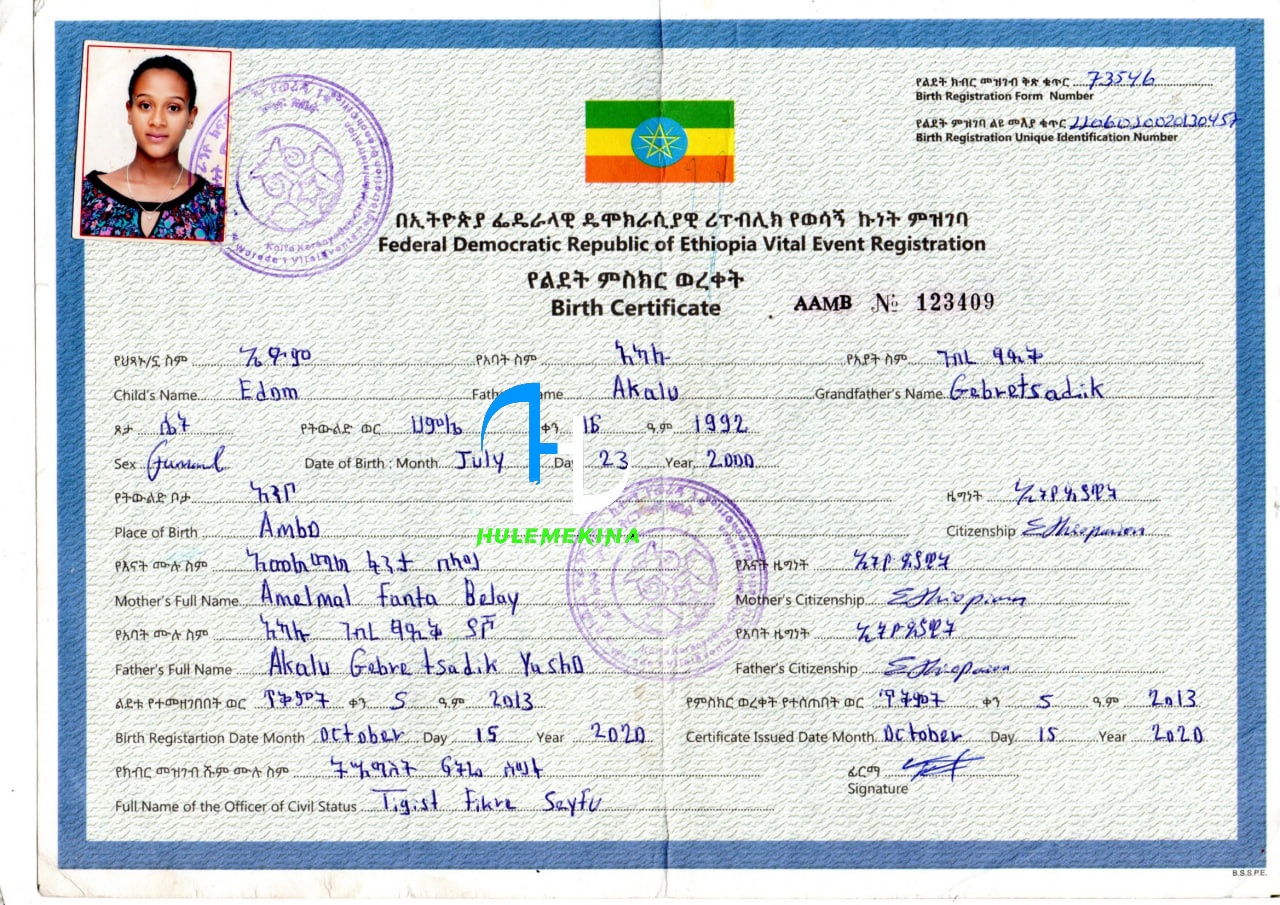 የልደት ክብር መዝገብ ቅጽ ቁጥር 73546
Birth Registration Form Number
የልደት ምዝገባ ልዩ መለያ ቁጥር
Birth Registration Unique Identification Number
በኢትዮጵያ ፌዴራላዊ ዴሞክራሲያዊ ሪፐብሊክ የወሳኝ ኩነት ምዝገባ
Federal Democratic Republic of Ethiopia Vital Event Registration
የልደት ምስክር ወረቀት
Birth Certificate
AAMB № 123409
የህጻኑ/ኗ ስም ኤዶም የአባት ስም አካሉ የአያት ስም ገብረ ፃዲቅ
Child's Name Edom Name Akalu Grandfather's Name Gebretsadik
ጾታ ሴት የትውልድ ወር ሀምሌ ቀን 16 ዓ.ም 1992
Sex Date of Birth : Month July Day 23 Year 2000
የትውልድ ቦታ አምቦ ዜግነት ኢትዮጵያዊት
Place of Birth Ambo Citizenship Ethiopian
HULEMEKINA
የእናት ሙሉ ስም አመልማል ፋንታ በላይ የእናት ዜግነት ኢትዮጵያዊት
Mother's Full Name Amelmal Fanta Belay Mother's Citizenship Ethiopian
የአባት ሙሉ ስም አካሉ ገብረ ፃዲቅ ያሾ የአባት ዜግነት ኢትዮጵያዊ
Father's Full Name Akalu Gebretsadik Yasho Father's Citizenship Ethiopian
ልደቱ የተመዘገበበት ወር ጥቅምት ቀን 5 ዓ.ም 2013 የምስክር ወረቀት የተሰጠበት ወር ጥቅምት ቀን 5 ዓ.ም 2013
Birth Registartion Date Month October Day 15 Year 2020 Certificate Issued Date Month October Day 15 Year 2020
የክብር መዝገብ ሹም ሙሉ ስም ትዕግስት ፍቅሬ ሰይፉ ፊርማ
Full Name of the Officer of Civil Status Tigist Fikre Seyfu Signature
B.S.S.P.E.